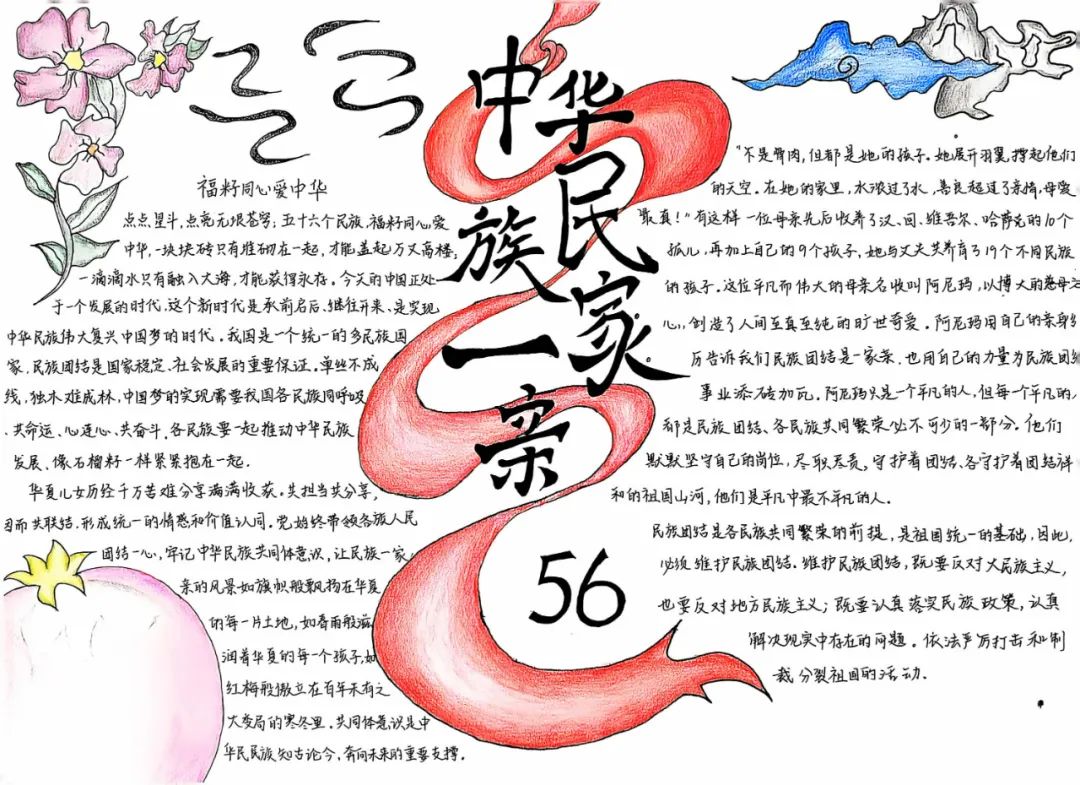 中华民族一家亲
56
福籽同心爱中华
点点星斗,点亮无垠苍穹;五十六个民族,福籽同心爱
中华,一块块砖只有堆砌在一起,才能盖起万丈高楼;
一滴滴水只有融入大海,才能获得永存。今天的中国正处
于一个发展的时代,这个新时代是承前启后、继往开来、是实现
中华民族伟大复兴中国梦的时代。我国是一个统一的多民族国
家,民族团结是国家稳定、社会发展的重要保证。单丝不成
线,独木难成林,中国梦的实现需要我国各民族同呼吸
、共命运、心连心、共奋斗,各民族要一起推动中华民族
发展、像石榴籽一样紧紧抱在一起.
华夏儿女历经千万苦难分享满满收获。共担当共分享,
因而共联结,形成统一的情感和价值认同。党始终带领各族人民
团结一心,牢记中华民族共同体意识,让民族一家
亲的风景如旗帜般飘扬在华夏
的每一片土地,如春雨般滋
润着华夏的每一个孩子,如
红梅般傲立在百年未有之
大变局的寒冬里。共同体意识是中
华民民族知古论今,奔向未来的重要支撑。
"不是骨肉,但都是她的孩子。她展开羽翼,撑起他们
的天空。在她的家里,水浓过了水,善良超过了亲情,母爱
最真!"有这样一位母亲先后收养了汉、回、维吾尔、哈萨克的10个
孤儿,再加上自己的9个孩子,她与丈夫共养育了19个不同民族
的孩子。这位平凡而伟大的母亲名收叫阿尼玛,以博大的慈母之
心,创造了人间至真至纯的旷世奇爱。阿尼玛用自己的亲身经
历告诉我们民族团结是一家亲、也用自己的力量为民族团结
事业添砖加瓦。阿尼玛只是一个平凡的人,但每一个平凡的人
都是民族团结、各民族共同繁荣必不可少的一部分。他们
默默坚守自己的岗位,尽职尽责,守护着团结、各守护着团结祥
和的祖国山河,他们是平凡中最不平凡的人.
民族团结是各民族共同繁荣的前提,是祖国统一的基础,因此,
必须维护民族团结。维护民族团结,既要反对大民族主义,
也要反对地方民族主义;既要认真落实民族政策,认真
解决现实中存在的问题。依法严厉打击和制
裁分裂祖国的活动.